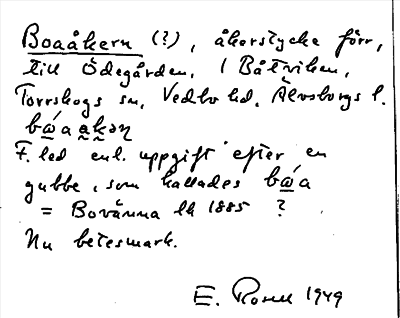 Boaåkern (?), åkerstycke förr,
till Ödegården, 1 Båtviken,
Torrskogs sn, Vedbo hd, Älvsborgs l.
F. led enl. uppgift efter en
gubbe, som kallades
= Bovänna lk 1885 ?
Nu betesmark.
E. Rosell 1949